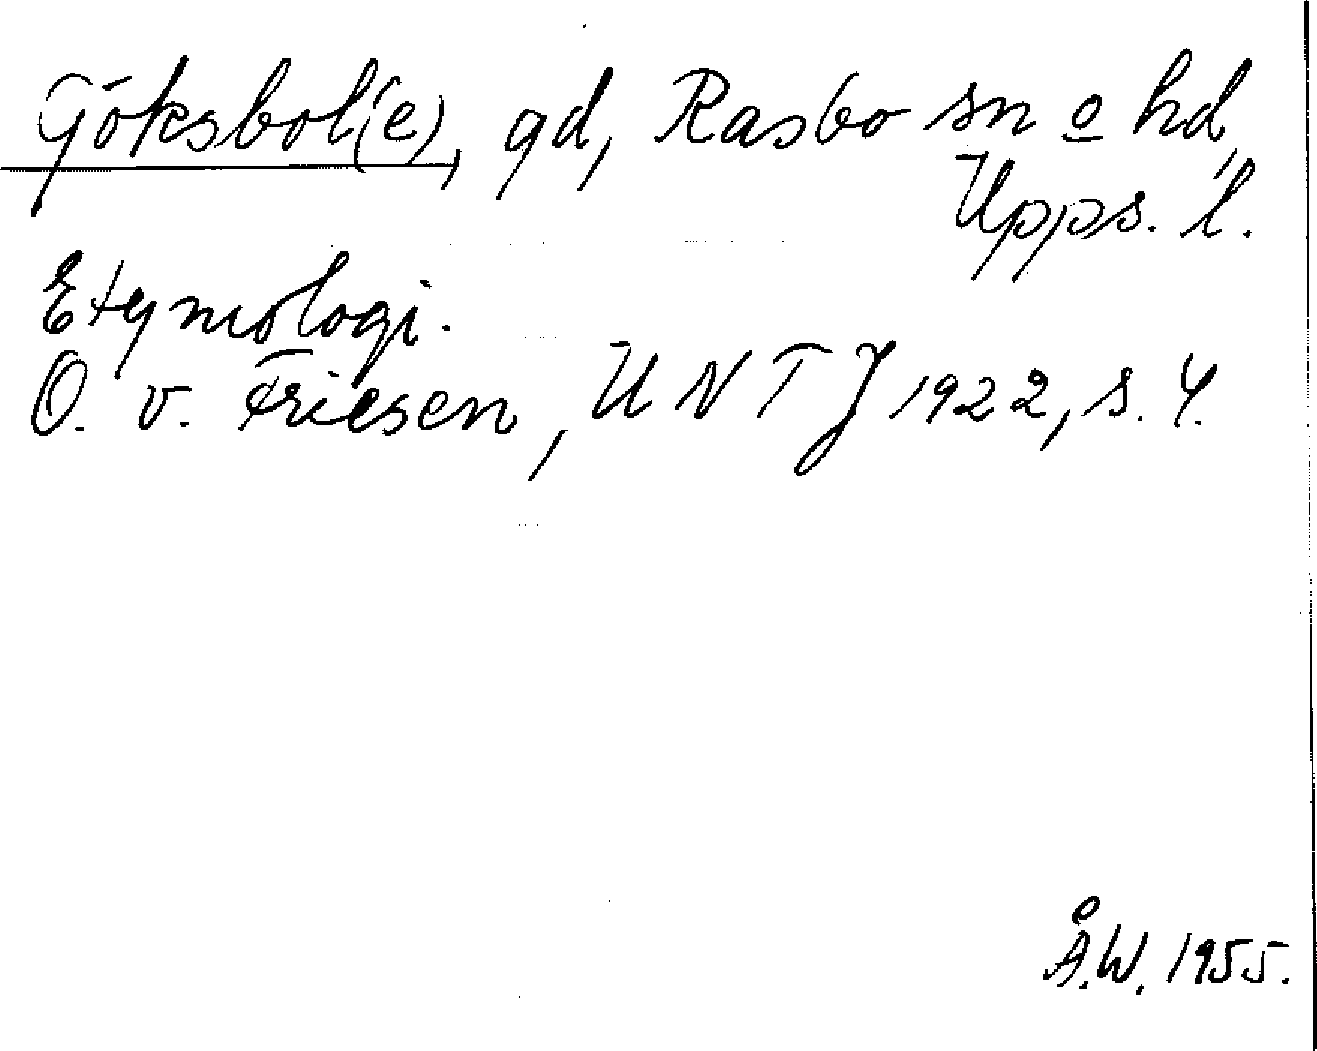 Göksbol(e), gd, Rasbo sn o hd,
Upps. l.
Etymologi.
O. v. Friesen, UNTJ 1922, s. 4.
Å.W. 1955.